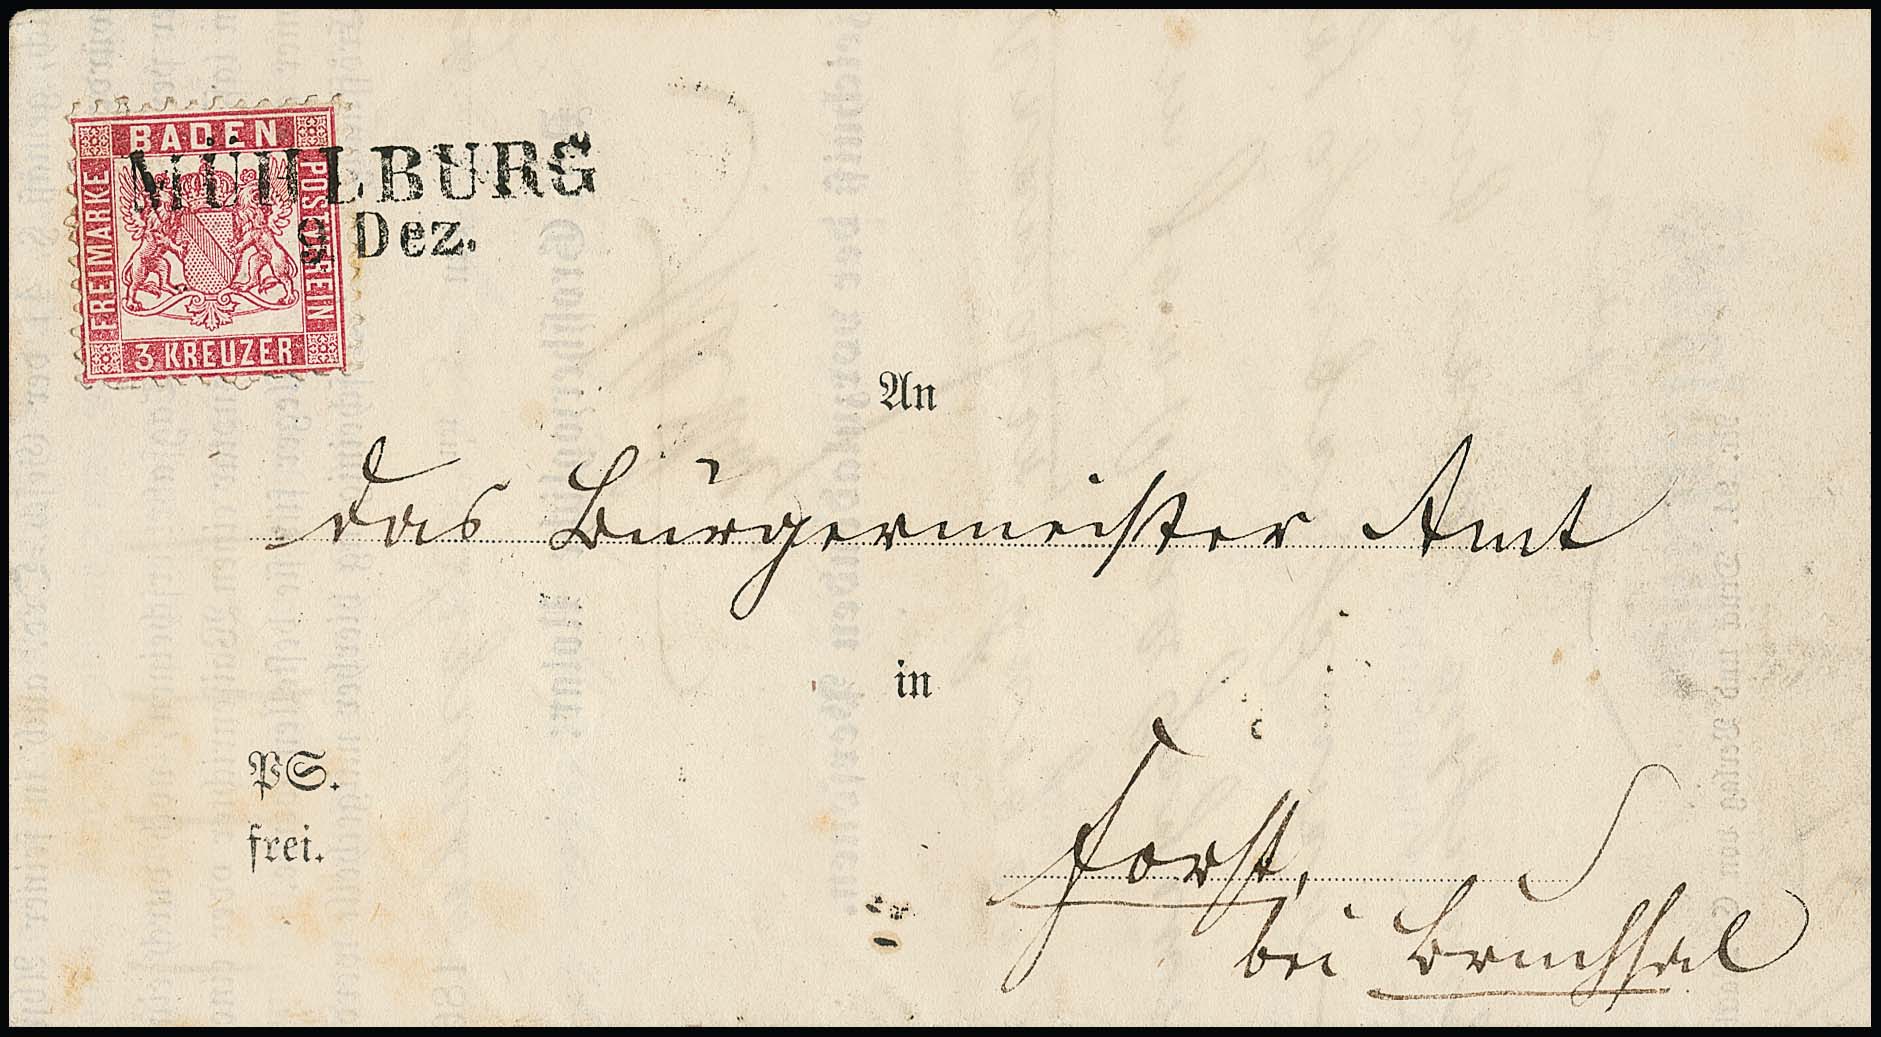 BADEN
FREIMARKE
POSTVEREIN
3 KREUZER
MÜHLBURG
9 Dez.
An
das Bürgermeister Amt
in
PS.
frei.
Forst,
bei Bruchsal